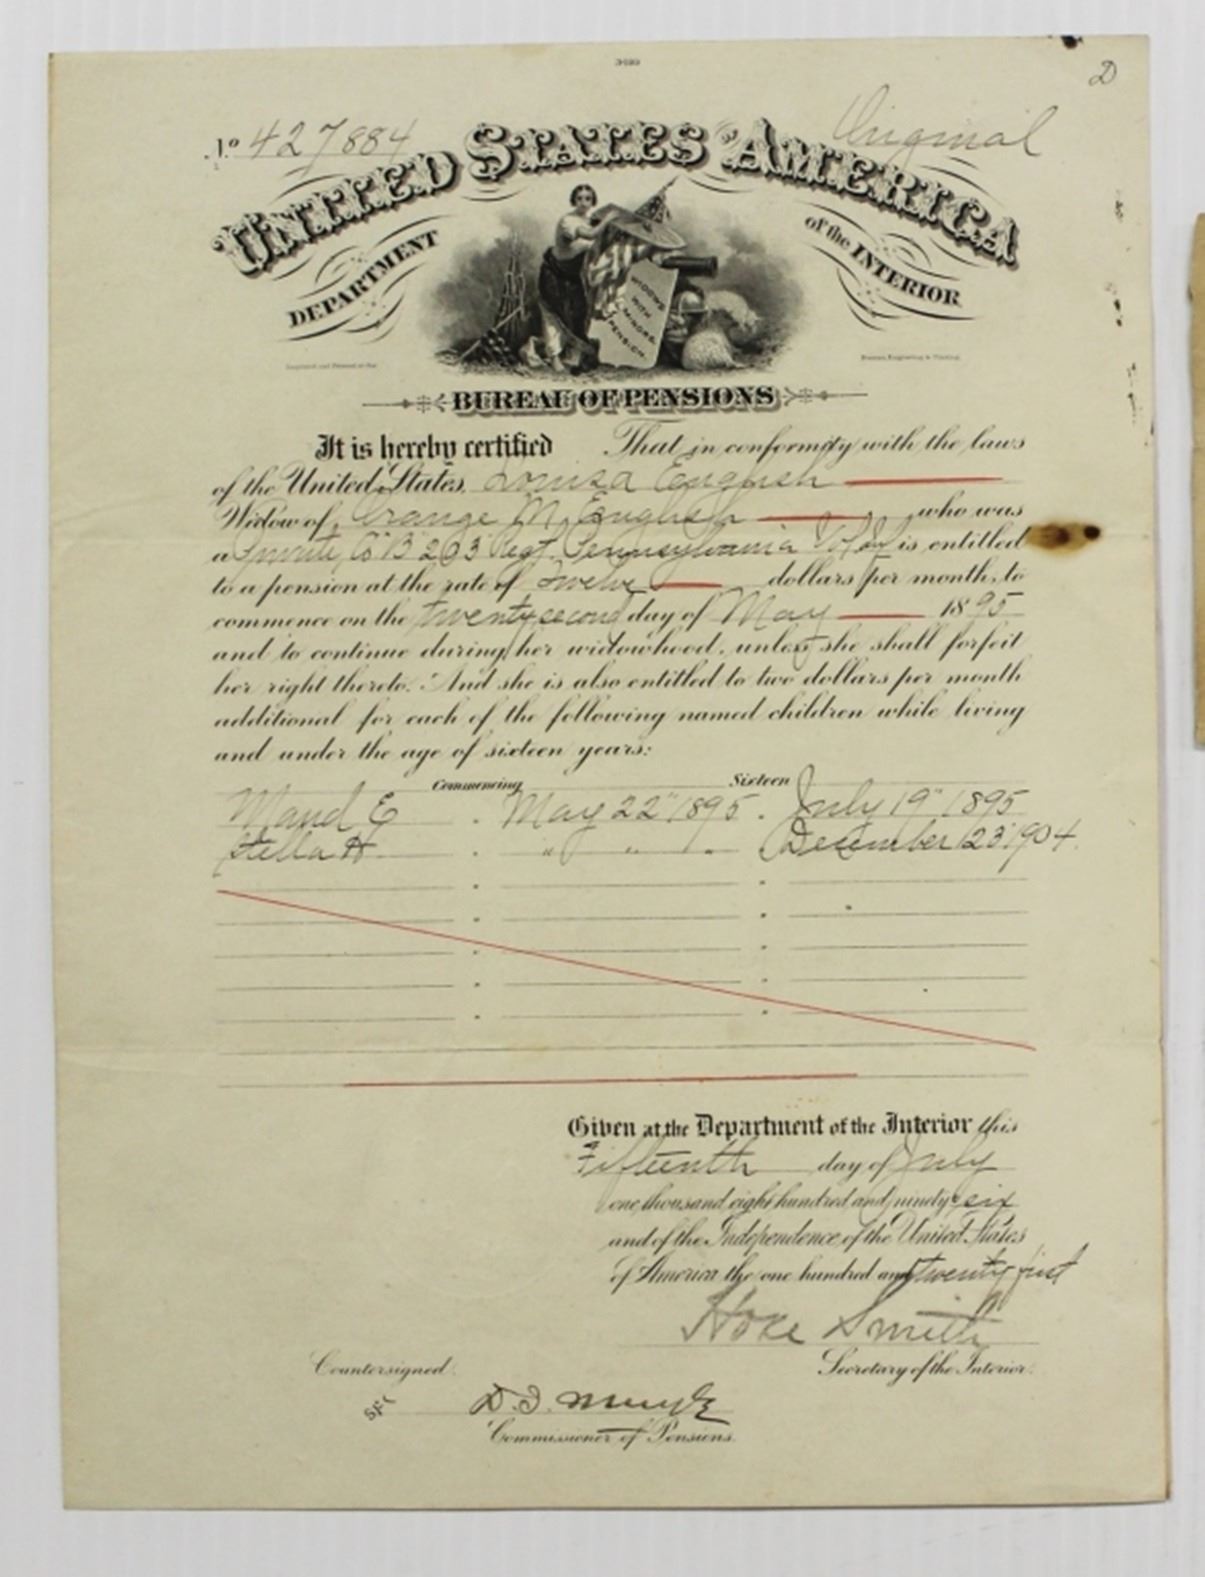 3-033
D
No 427884
Original
UNITED STATES OF AMERICA
DEPARTMENT of the INTERIOR
WIDOWS
WITH
MINORS.
PENSION
Engraved and Printed at the Bureau, Engraving & Printing.
BUREAU OF PENSIONS
It is hereby certified That in conformity with the laws
of the United States, Louisa English
Widow of, Orange M. English who was
a Private, Co "B" 203 Regt. Pennsylvania is entitled
to a pension at the rate of Twelve dollars per month, to
commence on the twenty second day of May 1895
and to continue during her widowhood, unless she shall forfeit
her right thereto. And she is also entitled to two dollars per month
additional for each of the following named children while living
and under the age of sixteen years:
Commencing Sixteen
Maud E May 22" 1895. July 19" 1895
Stella H " " " December 23" 1904.
Given at the Department of the Interior this
Fifteenth day of July
one thousand eight hundred and ninety-six
and of the Independence of the United States
of America the one hundred and twenty first
Hoke Smith
Secretary of the Interior.
Countersigned.
D. I. Murphy
Commissioner of Pensions.